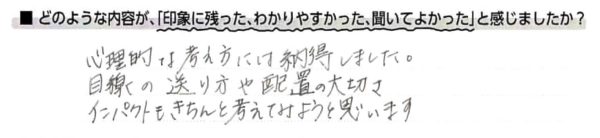 ■ どのような内容が、「印象に残った、わかりやすかった、聞いてよかった」と感じましたか？
心理的な考え方には納得しました。
目線の送り方や配置の大切さ
インパクトもきちんと考えてみようと思います